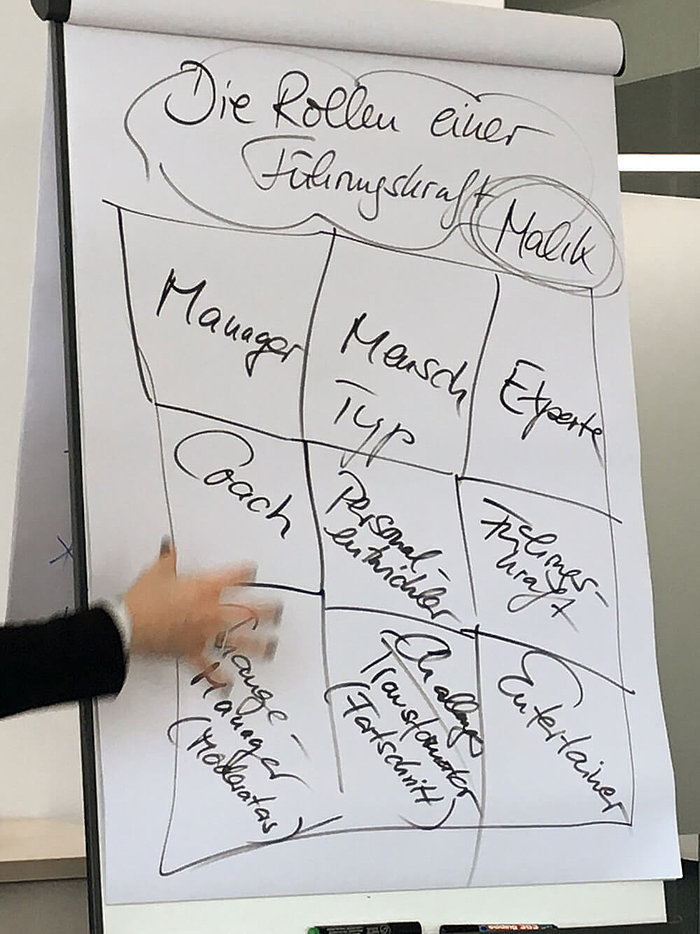 Die Rollen einer
Führungskraft
Malik
Manager
Mensch
Typ
Experte
Coach
Personal-
entwickler
Führungs-
kraft
Change-
Manager
(Moderator)
Challenger
Transformator
(Fortschritt)
Entertainer